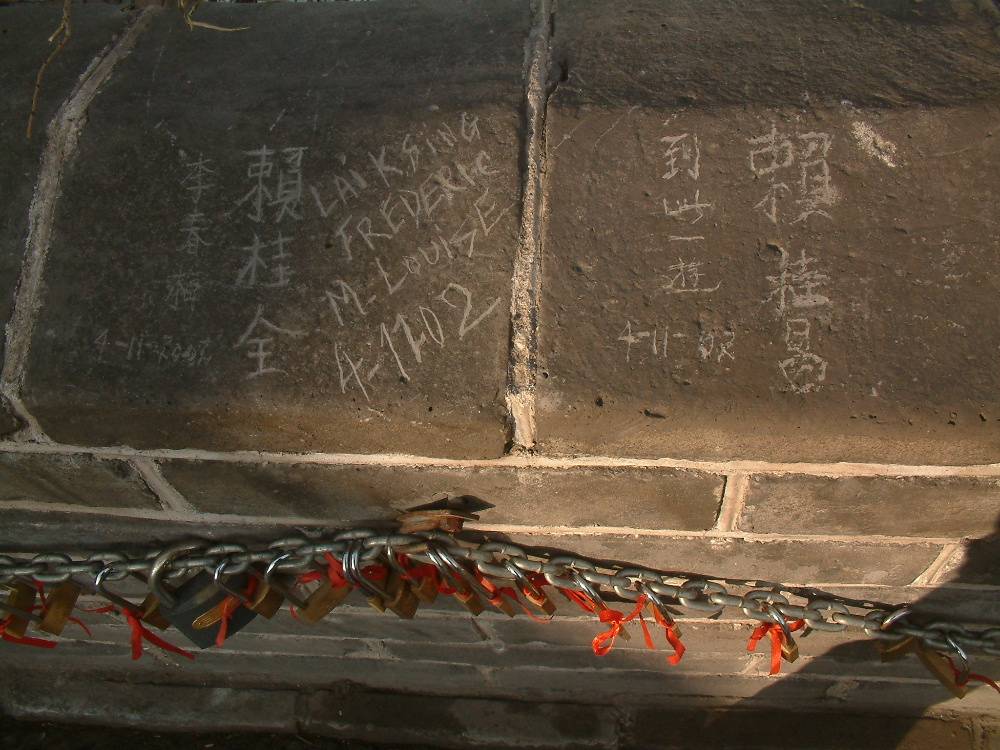 李春梅
賴桂全
4-11-2002
LAi KSiNG
FREDERIC
M-LOUiSE
4-1102
到此一遊
4-11-02
賴桂昌